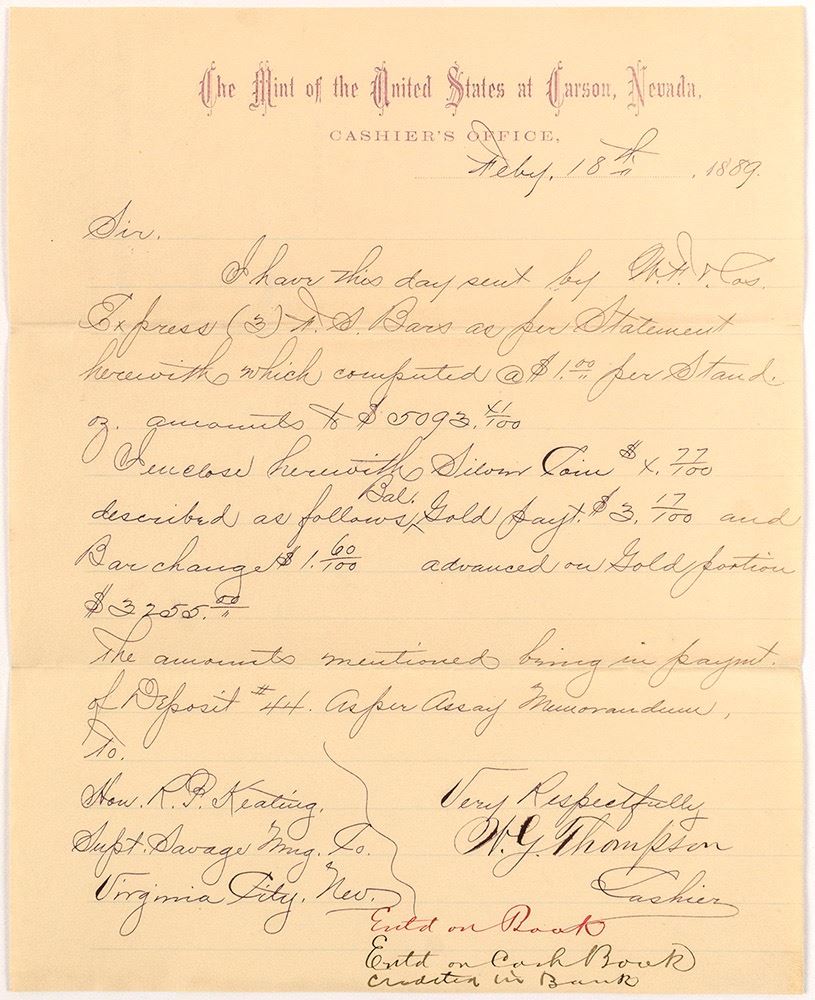 The Mint of the United States at Carson, Nevada,
CASHIER'S OFFICE,
Feby. 18th, 1889.
Sir.
I have this day sent by W. F. & Cos.
Express (3) F. S. Bars as per Statement
herewith which computed @ $1.00 per Stand.
oz. amounts to $5093.41/100
I enclose herewith Silver Coin $4.77/100
described as follows, Bal. Gold payt. $3.17/100 and
Bar change $1.60/100 advanced on Gold portion
$3255.00
The amounts mentioned being in paymt.
of Deposit #44. As per Assay Memorandum,
To.
Hon. R. P. Keating.
Supt. Savage Mng. Co.
Virginia City, Nev.
Very Respectfully
W. G. Thompson
Cashier
Entd on Book
Entd on Cash Book
credited in Bank